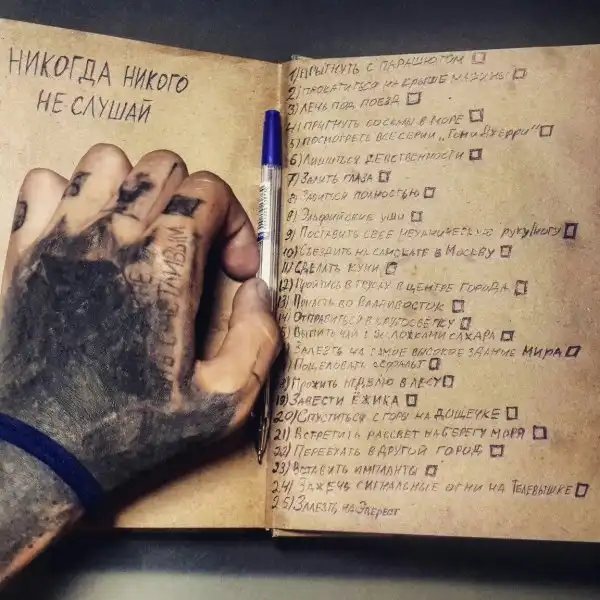 НИКОГДА НИКОГО
НЕ СЛУШАЙ
1) ПРЫГНУТЬ С ПАРАШЮТОМ
2) ПРОКАТИТЬСЯ НА КРЫШЕ МАШИНЫ
3) ЛЕЧЬ ПОД ПОЕЗД
4) ПРЫГНУТЬ СО СКАЛЫ В МОРЕ
5) ПОСМОТРЕТЬ ВСЕ СЕРИИ „Том и Джерри"
6) Лишиться ДЕВСТВЕННОСТИ
7) Залить ГЛАЗА
8) Забится ПОЛНОСТЬЮ
8) Эльфийские уши
9) Поставить себе механическую руку/ногу
10) Съездить на САПСАНЕ в Москву
11) СДЕЛАТЬ КУНИ
12) Пройтись в ТРУСАХ В ЦЕНТРЕ ГОРОДА
13) Попасть во ВЛАДИВОСТОК
14) ОТПРАВИТЬСЯ В КРУГОСВЕТКУ
15) ВЫПИТЬ ЧАЙ С ЛОЖКАМИ САХАРА
ЗАЛЕЗТЬ НА САМОЕ ВЫСОКОЕ ЗДАНИЕ МИРА
Поцеловать АСФАЛЬТ
Прожить НЕДЕЛЮ В ЛЕСУ
19) ЗАВЕСТИ ЁЖИКА
20) Спуститься С ГОРЫ НА ДОЩЕЧКЕ
21) Встретить РАССВЕТ НА БЕРЕГУ МОРЯ
22) ПЕРЕЕХАТЬ В ДРУГОЙ ГОРОД
23) ВСТАВИТЬ ИМПЛАНТЫ
24) ЗАЖЕЧЬ СИГНАЛЬНЫЕ ОГНИ НА ТЕЛЕВЫШКЕ
25) Залезть на Эверест